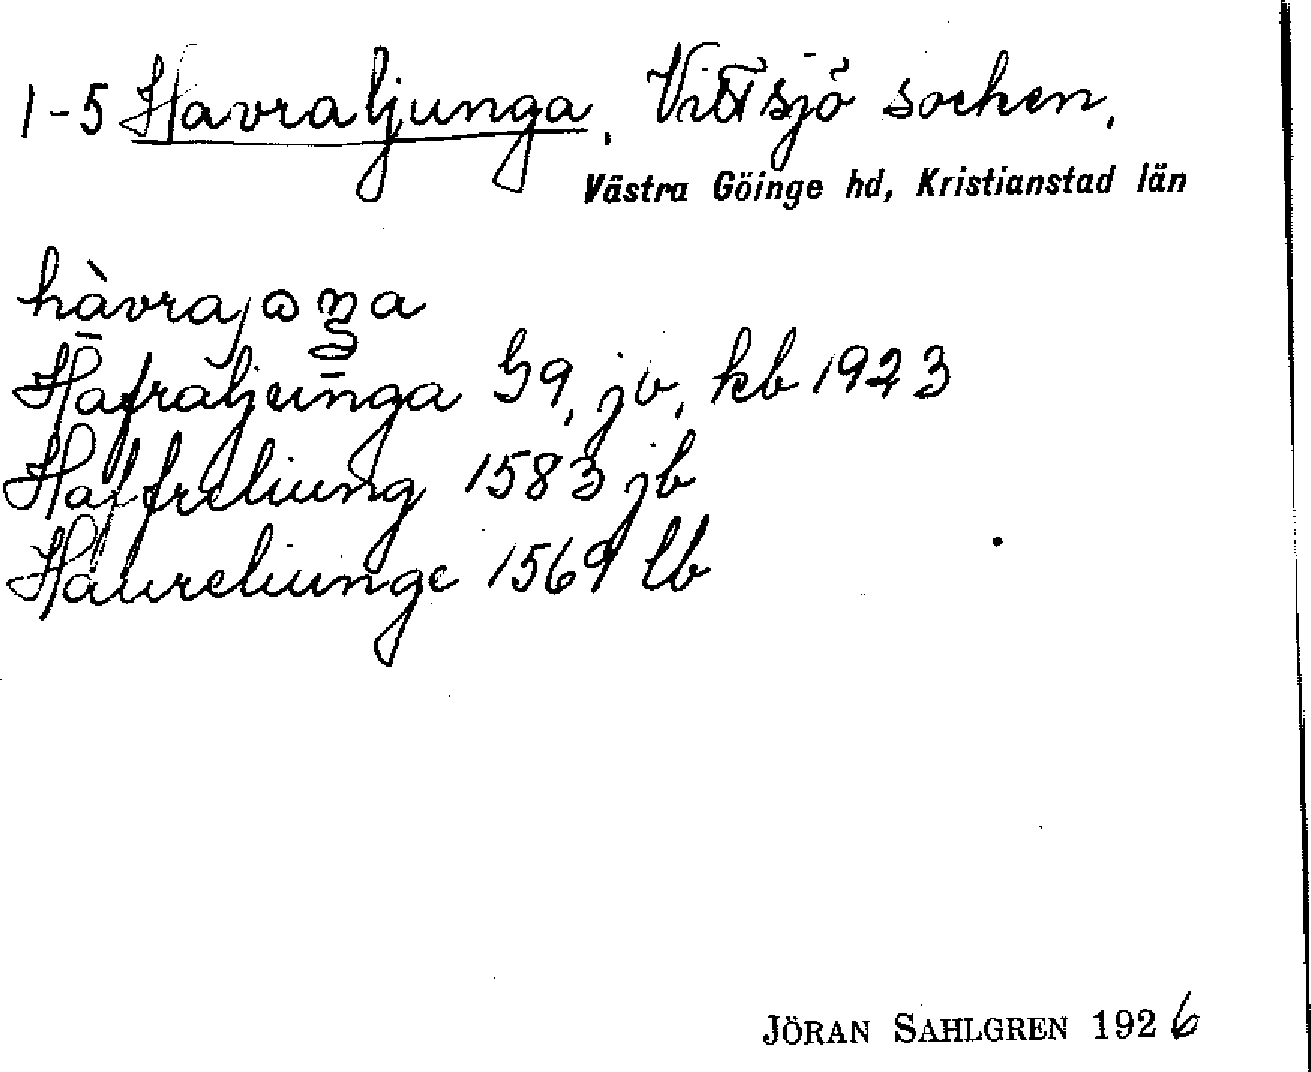 1-5 Havraljunga, Vittsjö socken,
Västra Göinge hd, Kristianstad län
hàvrajꙍŋa
Hafraljunga G9, jv, kb 1923
Haffreliung 1583 jb
Haureliunge 1569 lb
JÖRAN SAHLGREN 1926